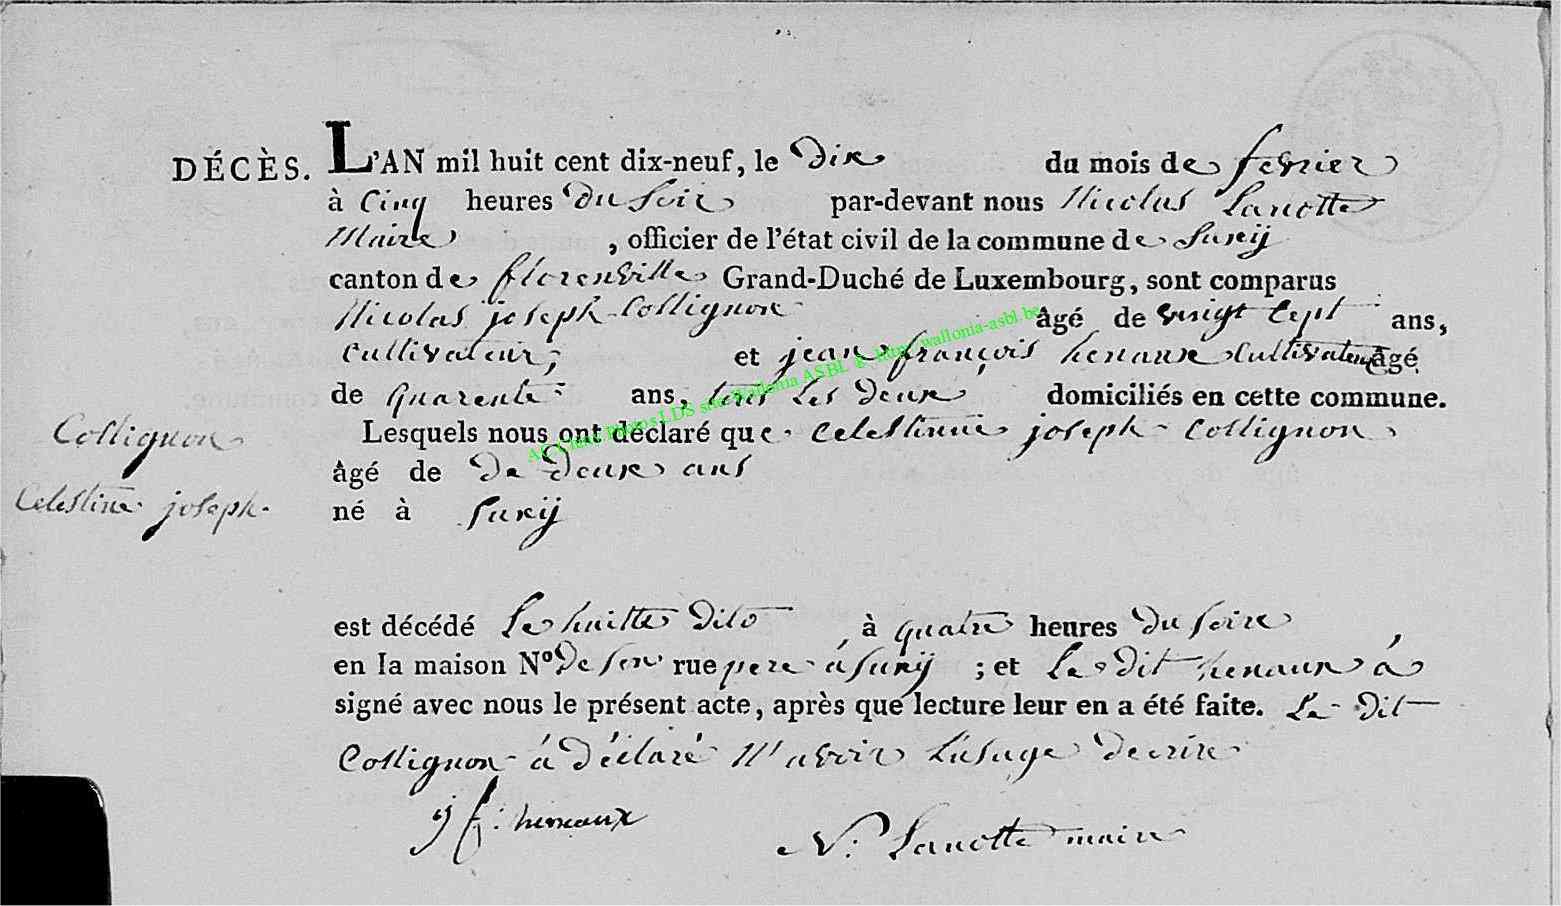 DÉCÈS. L'AN mil huit cent dix-neuf, le dix du mois de fevrier
à cinq heures du soir par-devant nous Nicolas Lanotte
Maire, officier de l'état civil de la commune de Suxij
canton de florenville Grand-Duché de Luxembourg, sont comparus
Nicolas joseph Collignon âgé de vingt sept ans,
cultivateur, et jean françois henaux cultivateur âgé
de quarente ans, tous les deux domiciliés en cette commune.
Collignon
Lesquels nous ont déclaré que celestinne joseph Collignon
âgé de de deux ans
Celestine joseph
né à Suxij
est décédé Le huitte dito, à quatre heures du soire,
en la maison No de son rue pere à Suxij ; et Le dit henaux à
signé avec nous le présent acte, après que lecture leur en a été faite. Le dit
Collignon à déclaré n'avoir L'usage decrire
j f: henaux
N. Lanotte maire
AG Client Photos LDS site Wallonia ASBL http://wallonia-asbl.be